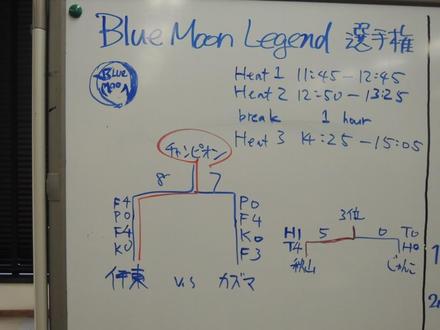 Blue Moon Legend 選手権
BLUE
MOON
Heat 1 11:45-12:45
Heat 2 12:50-13:25
break 1 hour
Heat 3 14:25-15:05
チャンピオン
8 7
F4 P0
P0 F4
F4 K0
K0 F3
伊東 V.S カズマ
3位
H1 5 0 T0
T4 H0
秋山 じゅんこ
1
2